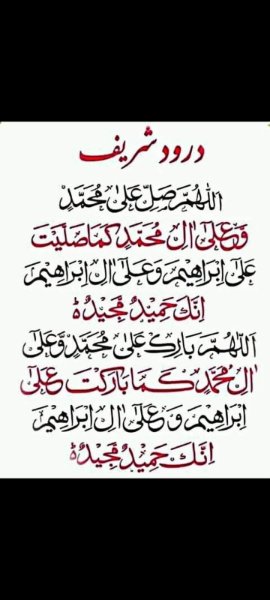 درود شریف
اَللّٰهُمَّ صَلِّ عَلٰى مُحَمَّدٍ
وَّعَلٰٓى اٰلِ مُحَمَّدٍ كَمَا صَلَّيْتَ
عَلٰٓى اِبْرَاهِيْمَ وَعَلٰٓى اٰلِ اِبْرَاهِيْمَ
اِنَّكَ حَمِيْدٌ مَّجِيْدٌ ؕ
اَللّٰهُمَّ بَارِكْ عَلٰى مُحَمَّدٍ وَّعَلٰٓى
اٰلِ مُحَمَّدٍ كَمَا بَارَكْتَ عَلٰٓى
اِبْرَاهِيْمَ وَعَلٰٓى اٰلِ اِبْرَاهِيْمَ
اِنَّكَ حَمِيْدٌ مَّجِيْدٌ ؕ